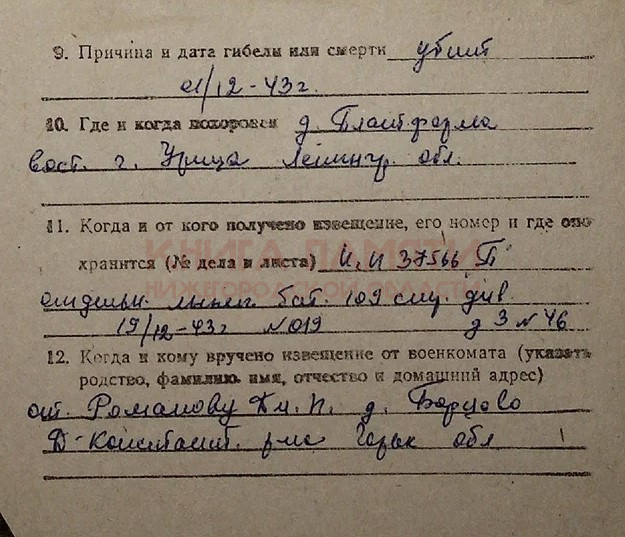 9. Причина и дата гибели или смерти убит
01/12-43г.
10. Где и когда похоронен д. Платформа
вост. г. Урицк Ленингр. обл.
11. Когда и от кого получено извещение, его номер и где оно
КНИГА ПАМЯТИ
хранится (№ дела и листа) И.И 37566 П
НИЖЕГОРОДСКОЙ ОБЛАСТИ
отдельн. лыжн. бат. 109 стр. див.
19/12-43г N019 д 3 N 46
12. Когда и кому вручено извещение от военкомата (указать
родство, фамилию, имя, отчество и домашний адрес)
от. Романову Дм. П. д. Борцово
Д-Констант. р-на Горьк обл